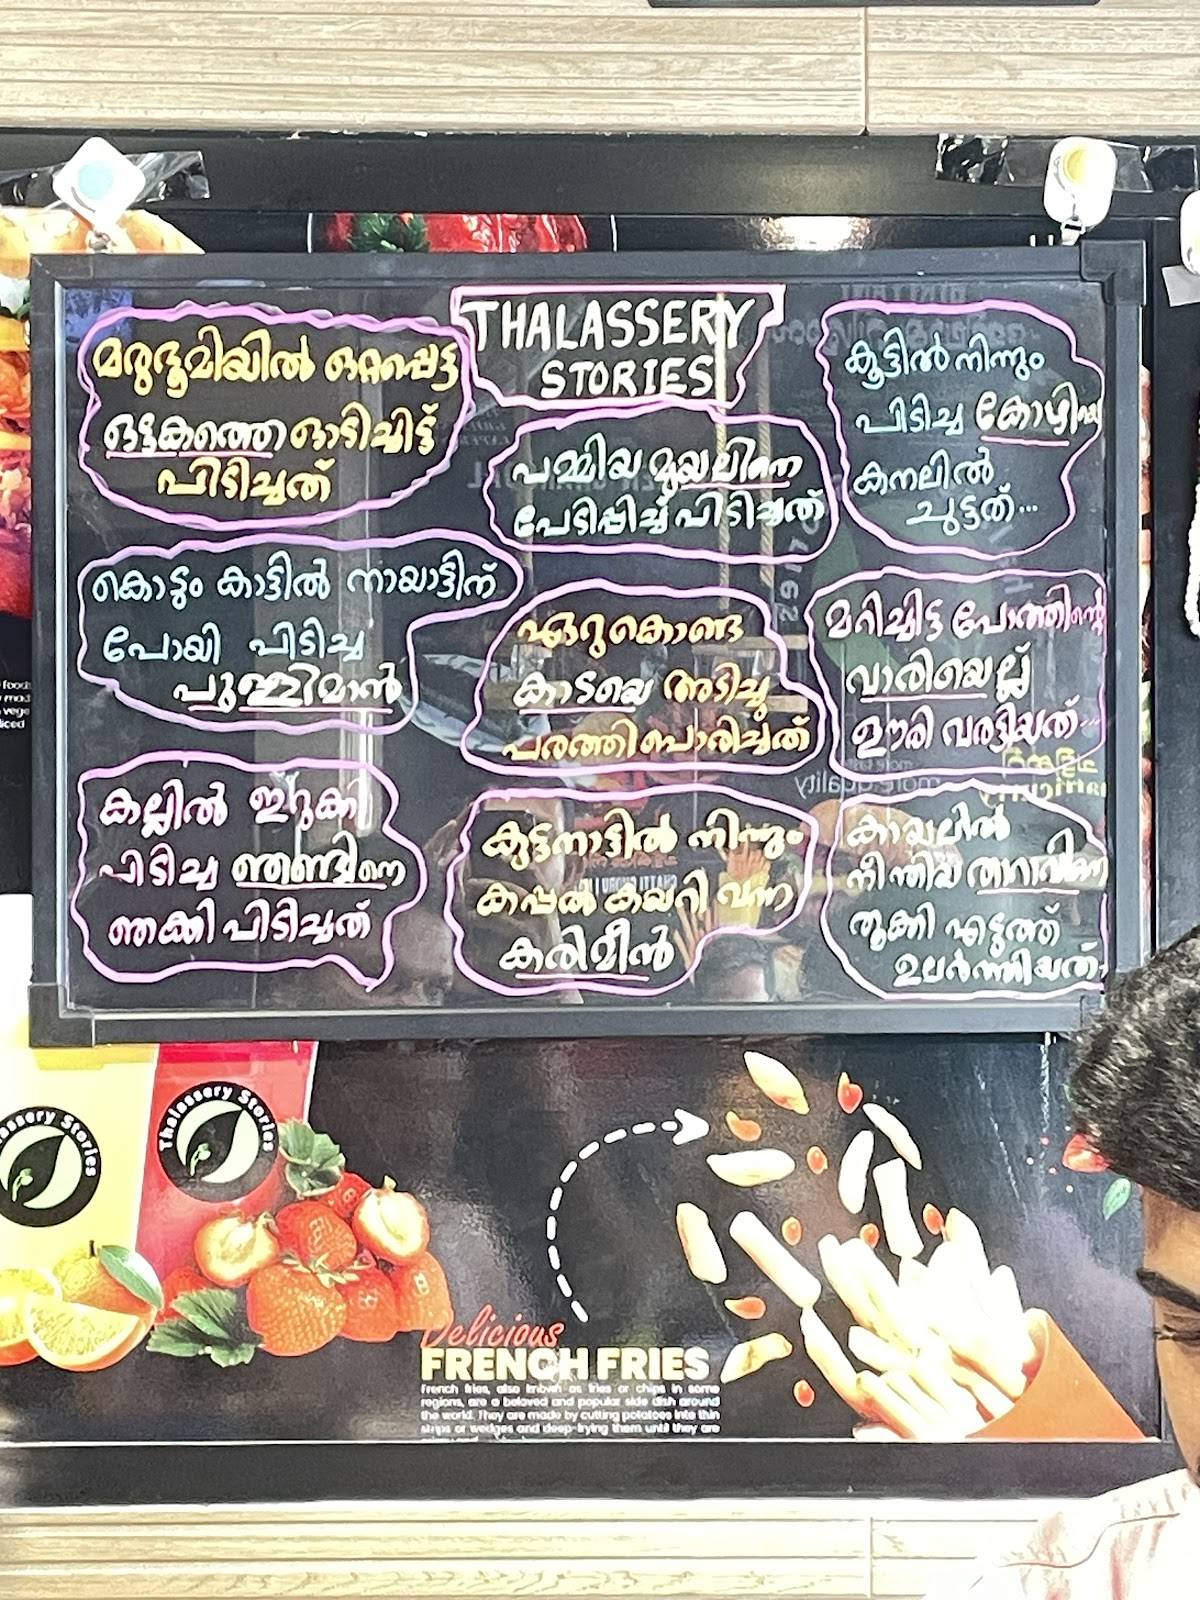 THALASSERY
STORIES
മരുഭൂമിയിൽ ഒറ്റപ്പെട്ട
ഒട്ടകത്തെ ഓടിച്ചിട്ട്
പിടിച്ചത്
പമ്മിയ മുയലിനെ
പേടിപ്പിച്ച് പിടിച്ചത്
കൂട്ടിൽ നിന്നും
പിടിച്ച കോഴിയെ
കനലിൽ
ചുട്ടത്...
കൊടും കാട്ടിൽ നായാട്ടിന്
പോയി പിടിച്ച
പുള്ളിമാൻ
ഏറുകൊണ്ട
കാടയെ അടിച്ചു
പരത്തി പൊരിച്ചത്
മറിച്ചിട്ട പോത്തിന്റെ
വാരിയെല്ല്
ഊരി വരട്ടിയത്...
കല്ലിൽ ഇറുക്കി
പിടിച്ച ഞണ്ടിനെ
ഞെക്കി പിടിച്ചത്
കുട്ടനാട്ടിൽ നിന്നും
കപ്പൽ കയറി വന്ന
കരിമീൻ
കായലിൽ
നീന്തിയ താറാവിനെ
തൂക്കി എടുത്ത്
ഉലർത്തിയത്.
Thalassery Stories
assery Stories
Delicious
FRENCH FRIES
French fries, also known as fries or chips in some
regions, are a beloved and popular side dish around
the world. They are made by cutting potatoes into thin
strips or wedges and deep-frying them until they are